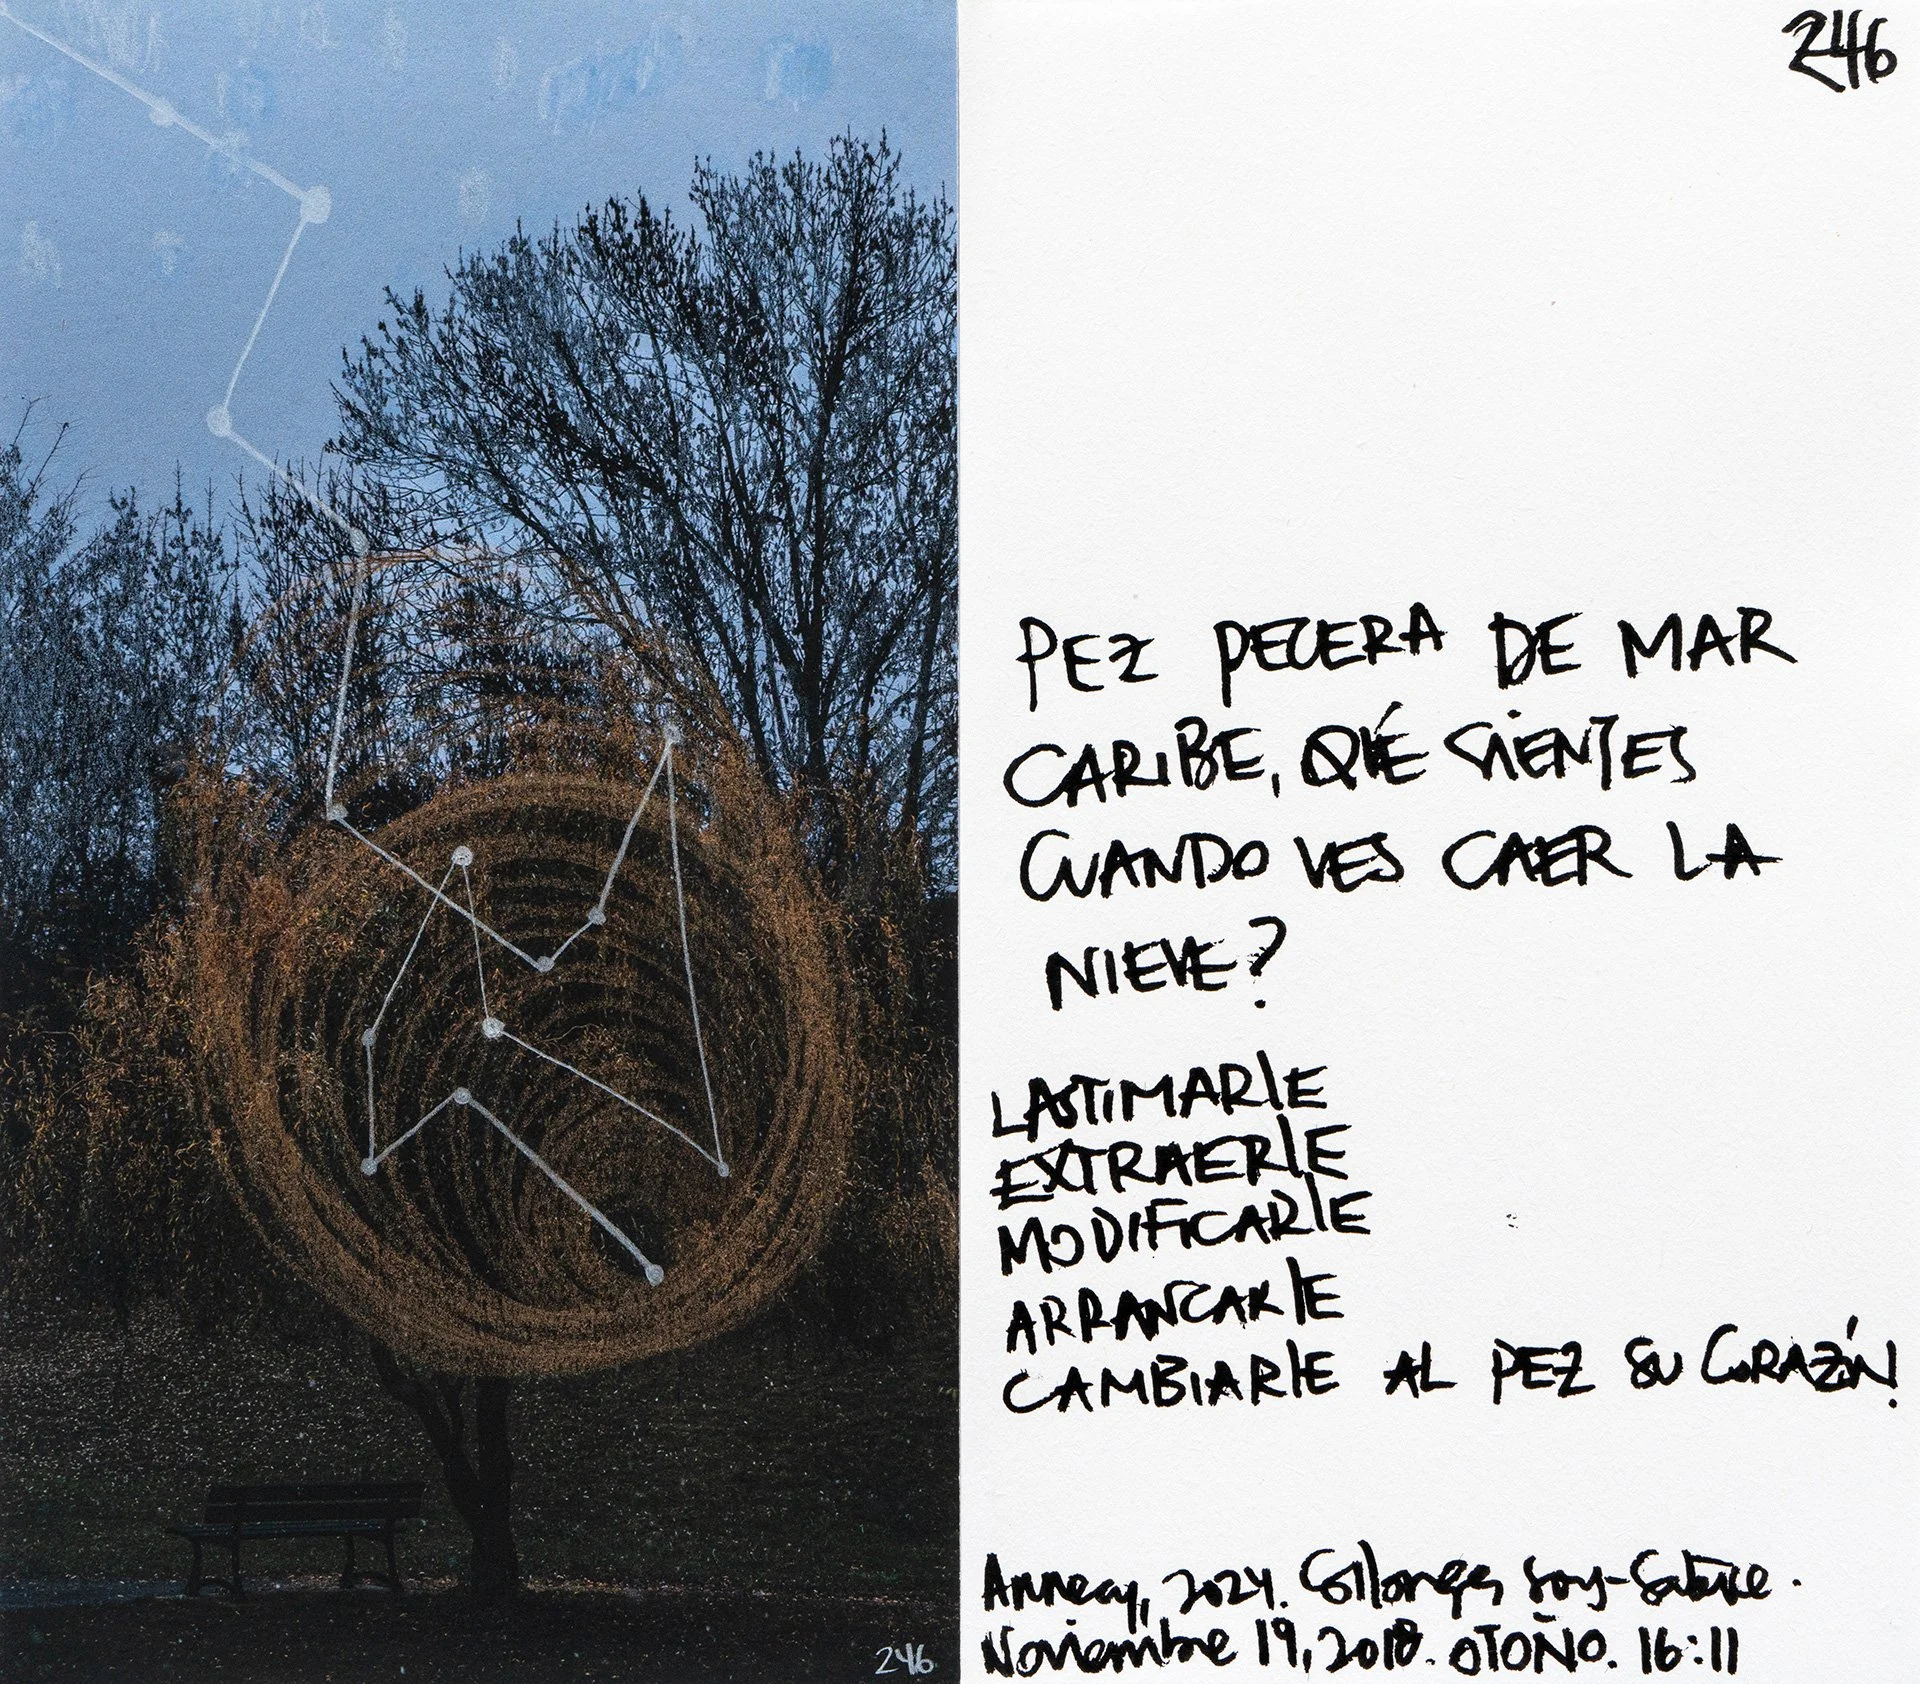 246
PEZ PECERA DE MAR
CARIBE, QUÉ SIENTES
CUANDO VES CAER LA
NIEVE?
LASTIMARLE
EXTRAERLE
MODIFICARLE
ARRANCARLE
CAMBIARLE AL PEZ SU CORAZÓN!
Annecy, 2024. Collonges sous-Salève.
Noviembre 19, 2018. OTOÑO. 16:11
246